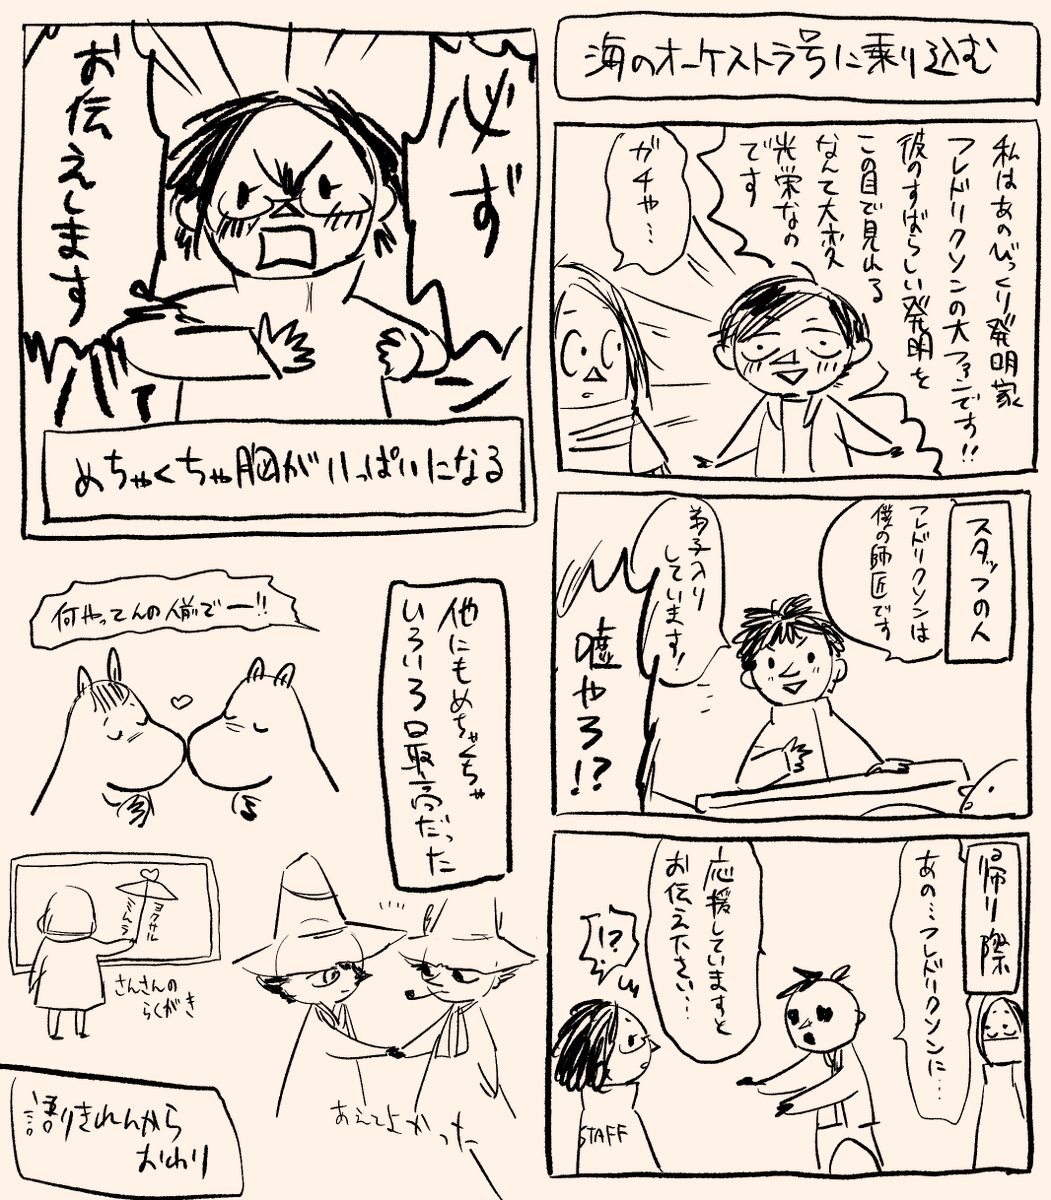 海のオーケストラ号に乗り込む
私はあのびっくり発明家
フレドリクソンの大ファンです!!
彼のすばらしい発明を
この目で見れる
なんて大変
光栄なの
です
ガチや…
スタッフの人
フレドリクソンは
僕の師匠です
弟子入り
しています!
嘘やろ!?
帰り際
あの…フレドリクソンに…
応援していますと
お伝え下さい…
!?
STAFF
必ず
お伝えします
めちゃくちゃ胸がいっぱいになる
他にもめちゃくちゃ
いろいろ最高だった
何やってんの人前でー!!
ヨクサル
ミムラ
さんさんの
らくがき
あえてよかった
語りきれんから
おわり